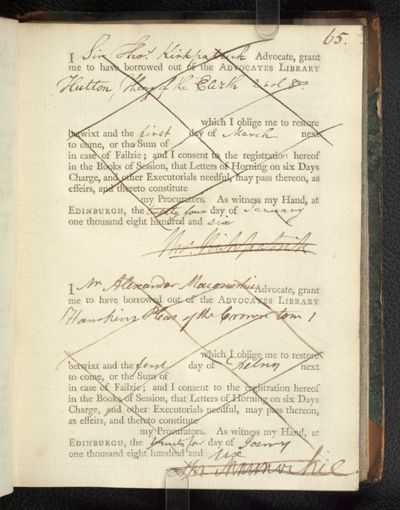 65.
I Sir Thos. Kirkpatrick Advocate, grant
me to have borrowed out of the ADVOCATES LIBRARY
Hutton, Theory of the Earth 2 vol 8o
which I oblige me to restore
betwixt and the first day of March next
to come, or the Sum of
in case of Failzie; and I consent to the registration hereof
in the Books of Session, that Letters of Horning on six Days
Charge, and other Executorials needful, may pass thereon, as
effeirs, and thereto constitute
my Procurators. As witness my Hand, at
EDINBURGH, the twenty four day of January
one thousand eight hundred and six
Thos. Kirkpatrick
I Mr Alexander Maconochie Advocate, grant
me to have borrowed out of the ADVOCATES LIBRARY
Hawkins Pleas of the Crown tom 1
which I oblige me to restore
betwixt and the day of next
to come, or the Sum of
in case of Failzie; and I consent to the registration hereof
in the Books of Session, that Letters of Horning on six Days
Charge, and other Executorials needful, may pass thereon,
as effeirs, and thereto constitute
my Procurators. As witness my Hand, at
EDINBURGH, the twenty four day of
one thousand eight hundred and six
Maconochie